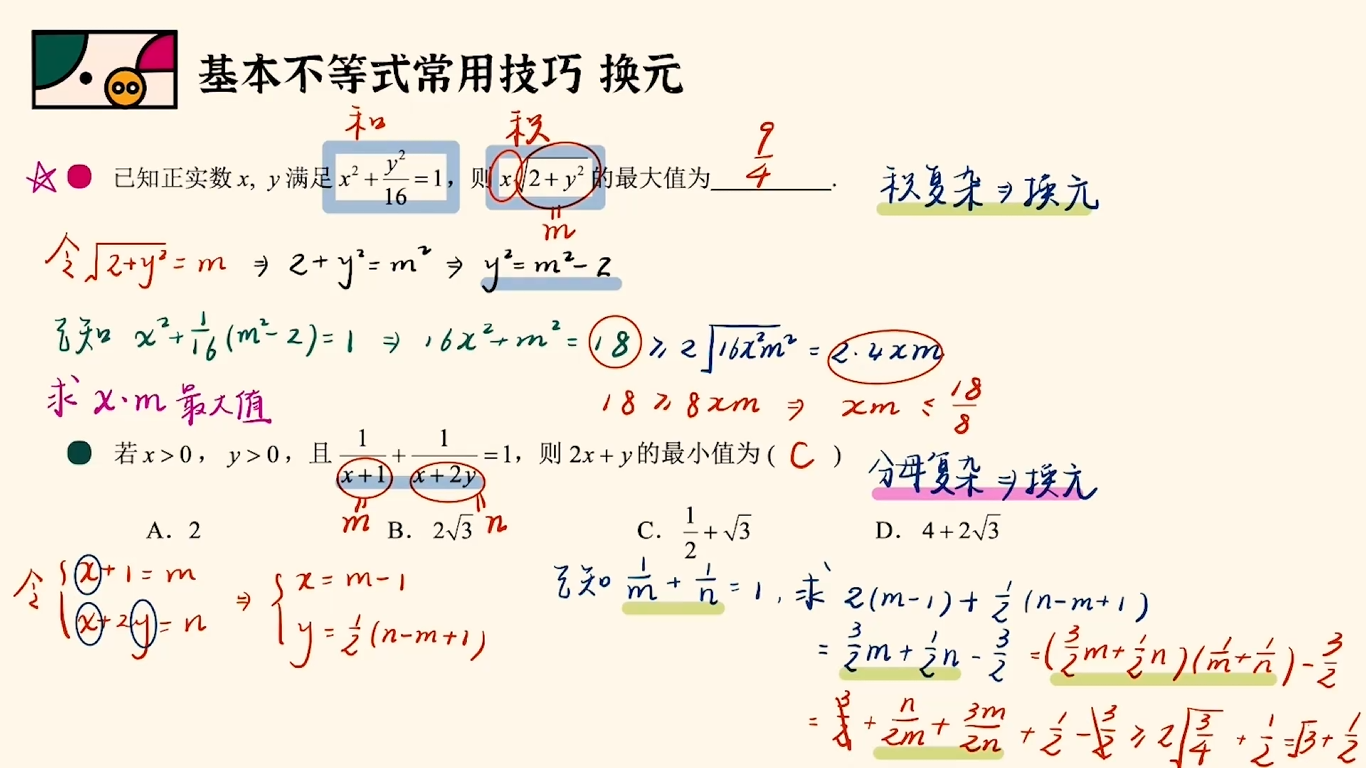 基本不等式常用技巧 换元
和 积 9/4
已知正实数 x, y 满足 x² + y²/16 = 1, 则 x√(2 + y²) 的最大值为________.
积复杂 ⇒ 换元
m
令 √(2+y²) = m ⇒ 2 + y² = m² ⇒ y² = m² - 2
已知 x² + 1/16 (m² - 2) = 1 ⇒ 16x² + m² = 18 ≥ 2√(16x²m²) = 2·4xm
求 x·m 最大值 18 ≥ 8xm ⇒ xm ≤ 18/8
若 x > 0, y > 0, 且 1/(x+1) + 1/(x+2y) = 1, 则 2x + y 的最小值为 ( C )
分母复杂 ⇒ 换元
m n
A. 2 B. 2√3 C. 1/2 + √3 D. 4 + 2√3
令 { x + 1 = m ⇒ { x = m - 1
x + 2y = n y = 1/2 (n - m + 1)
已知 1/m + 1/n = 1, 求 2(m-1) + 1/2 (n-m+1)
= 3/2 m + 1/2 n - 3/2 = (3/2 m + 1/2 n)(1/m + 1/n) - 3/2
= 3/2 + n/2m + 3m/2n + 1/2 - 3/2 ≥ 2√(3/4) + 1/2 = √3 + 1/2